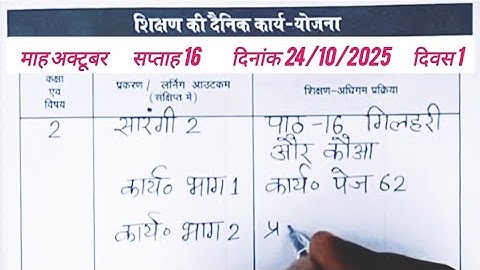 शिक्षण की दैनिक कार्य-योजना
माह अक्टूबर सप्ताह 16 दिनांक 24/10/2025 दिवस 1
कक्षा एवं विषय
प्रकरण / लर्निंग आउटकम (संक्षिप्त में)
शिक्षण-अधिगम प्रक्रिया
2 सारंगी 2 पाठ-16 गिलहरी
और कौआ
कार्य० भाग 1 कार्य० पेज 62
कार्य० भाग 2 प्र